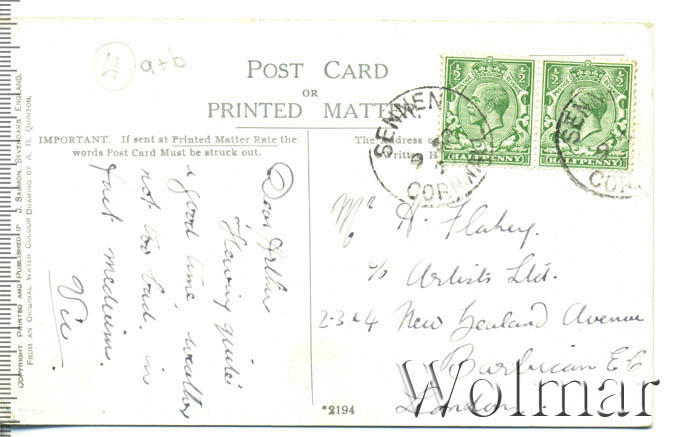 4 a+b
POST CARD
OR
PRINTED MATTER.
IMPORTANT. If sent at Printed Matter Rate the
words Post Card Must be struck out.
The Address
½ ½
HALFPENNY
½ ½
HALFPENNY
SENNEN
CORNWALL
SENN
CORN
Dear Arthur
Having quite
a good time, weather
not too bad. in
fact medium.
Vic.
Mr H. Flahey.
c/o Artists Ltd.
2-3 & 4 New Zealand Avenue
Barbican EC
London.
*2194
COPYRIGHT. PRINTED AND PUBLISHED BY J. SALMON, SEVENOAKS, ENGLAND,
FROM AN ORIGINAL WATER COLOUR DRAWING BY A. R. QUINTON.
Wolmar